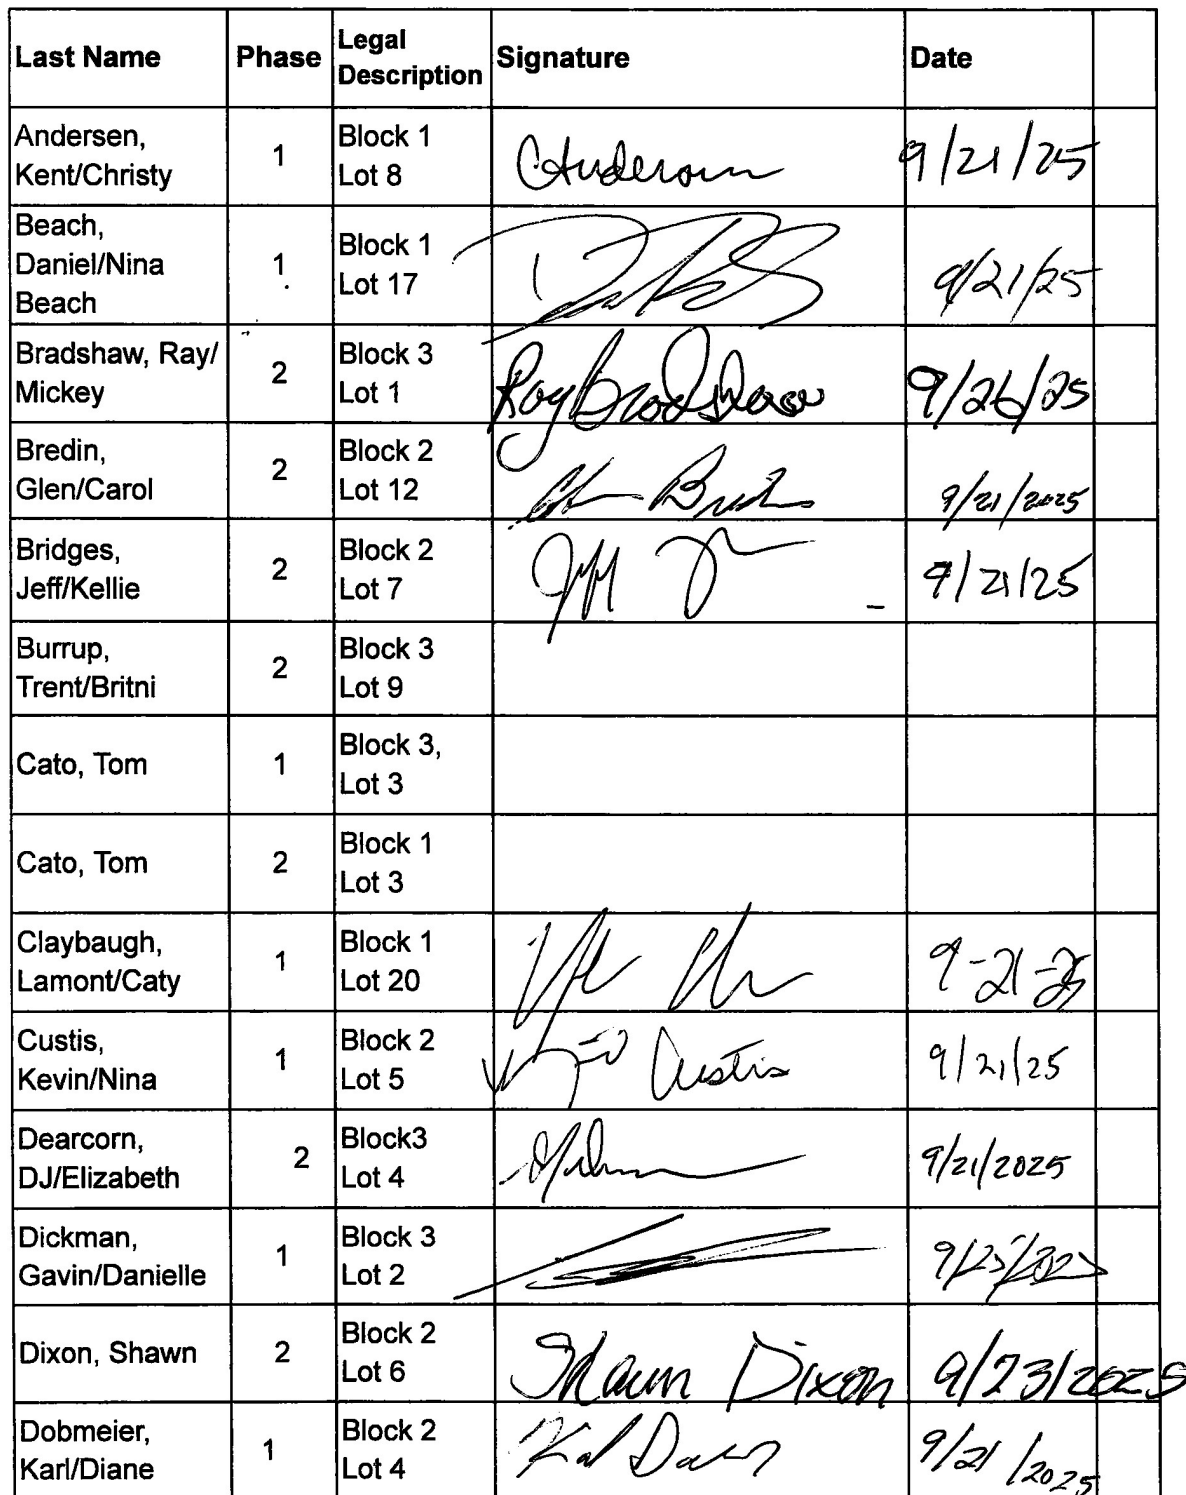 Last Name Phase Legal Description Signature Date
Andersen, Kent/Christy 1 Block 1 Lot 8 CAnderson 9/21/25
Beach, Daniel/Nina Beach 1 Block 1 Lot 17 9/21/25
Bradshaw, Ray/ Mickey 2 Block 3 Lot 1 Ray Bradshaw 9/26/25
Bredin, Glen/Carol 2 Block 2 Lot 12 9/21/2025
Bridges, Jeff/Kellie 2 Block 2 Lot 7 Jeff 9/21/25
Burrup, Trent/Britni 2 Block 3 Lot 9
Cato, Tom 1 Block 3, Lot 3
Cato, Tom 2 Block 1 Lot 3
Claybaugh, Lamont/Caty 1 Block 1 Lot 20 9-21-25
Custis, Kevin/Nina 1 Block 2 Lot 5 Custis 9/21/25
Dearcorn, DJ/Elizabeth 2 Block3 Lot 4 9/21/2025
Dickman, Gavin/Danielle 1 Block 3 Lot 2
Dixon, Shawn 2 Block 2 Lot 6 Shawn Dixon 9/23/2025
Dobmeier, Karl/Diane 1 Block 2 Lot 4 9/21/2025